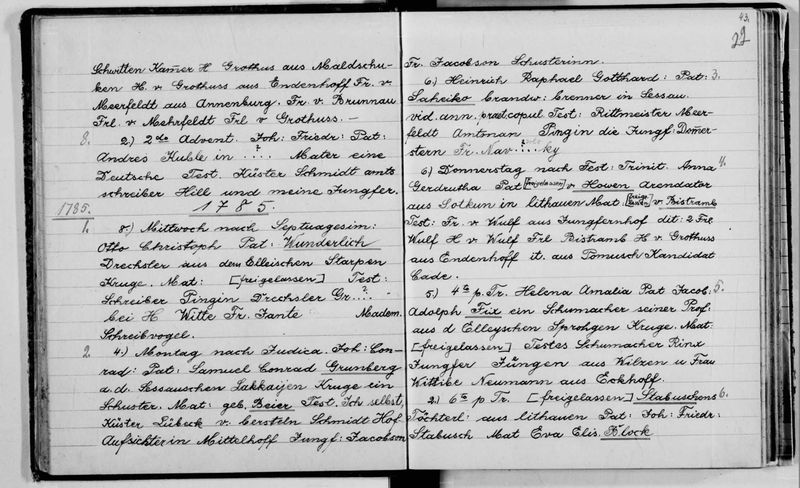 Schwitten Kam̄er H Grothus aus Maldschu-
ken H. v Grothuss aus Endenhoff Fr. v.
Meerfeldt aus Annenburg. Fr. v. Brunnau
Frl. v. Mehrfeldt Frl v Grothuss. —
8. 2.) 2de Advent. Joh: Friedr: Pat:
Andres Kuhle in ..?.. Mater eine
Deutsche Test. Küster Schmidt amts
schreiber Hill und meine Jungfer.
1785. 1785.
1. 8.) Mittwoch nach Septuagesim:
Otto Christoph Pat: Wunderlich
Drechsler aus dem Elleischen Starpen
Kruge. Mat: [freigelassen] Test:
Schreiber Pingin Drechsler Gr..?..
bei H Witte Fr. Tante Madem.
Schreibvogel.
2 4.) Montag nach Judica. Joh: Con-
rad: Pat: Samuel Conrad Grunberg
a. d. Sessauschen Lakkaijen Kruge ein
Schuster. Mat: geb. Beier Test. Ich selbst,
Küster Lübeck v. Gersteln Schmidt Hof
Aufsichterin Mittelhoff Jungf: Jacobson
43.
22
Fr. Jacobson Schusterinn.
6.) Heinrich Raphael Gotthard: Pat: 3.
Saheiko Brandw: brenner in Sessau.
vid. ann. praet. copul Test: Rittmeister Meer-
feldt Amtman Pingin die Jungf: Dom̄er-
stern Fr. Nav..?..ky
6) Donnerstag nach Fest: Trinit. Anna 4.
Gerdrutha Pat [freigelassen] v Howen Arendator
aus Sotkun in lithauen Mat. [freige lassen] v. Bistramb
Test: Fr. v Wulf aus Jungfernhof dit: 2 Frl
Wulf H v Wulf Frl Bistramb H v. Grothuss
aus Endenhoff it. aus Tomusch Kandidat
Cade.
5.) 4te p. Tr. Helena Amalia Pat Jacob: 5.
Adolph Fix ein Schumacher seiner Prof:
aus d Elleyschen Sprohgen Kruge. Mat
[freigelassen] Testes Schumacher Rinx
Jungfer Jüngen aus Wilzen u Frau
Wittibe Neumann aus Eckhoff.
2.) 6te p Tr. [freigelassen] Stabuschens 6.
Töchterl: aus lithauen Pat: Joh: Friedr:
Stabusch Mat Eva Elis. Block